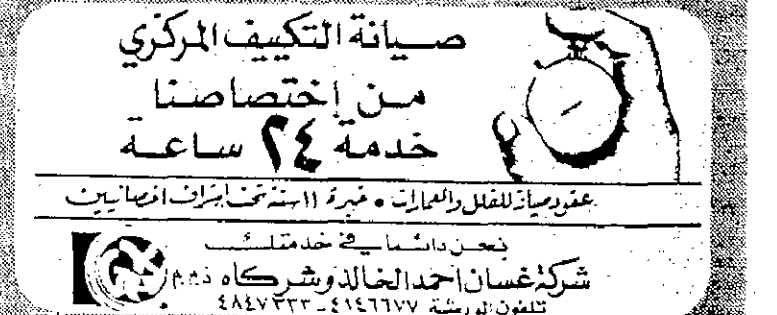 صيانة التكييف المركزي
من إختصاصنا
خدمة ٢٤ ساعة
عقود صيانة للفلل والعمارات • خبرة ١١ سنة تحت اشراف اخصائيين
نحن دائما في خدمتك
شركة غسان احمد الخالد وشركاه ذ.م.م
تلفون الورشة ٤١٤٦٦٧٧ - ٤٨٤٧٣٣٣